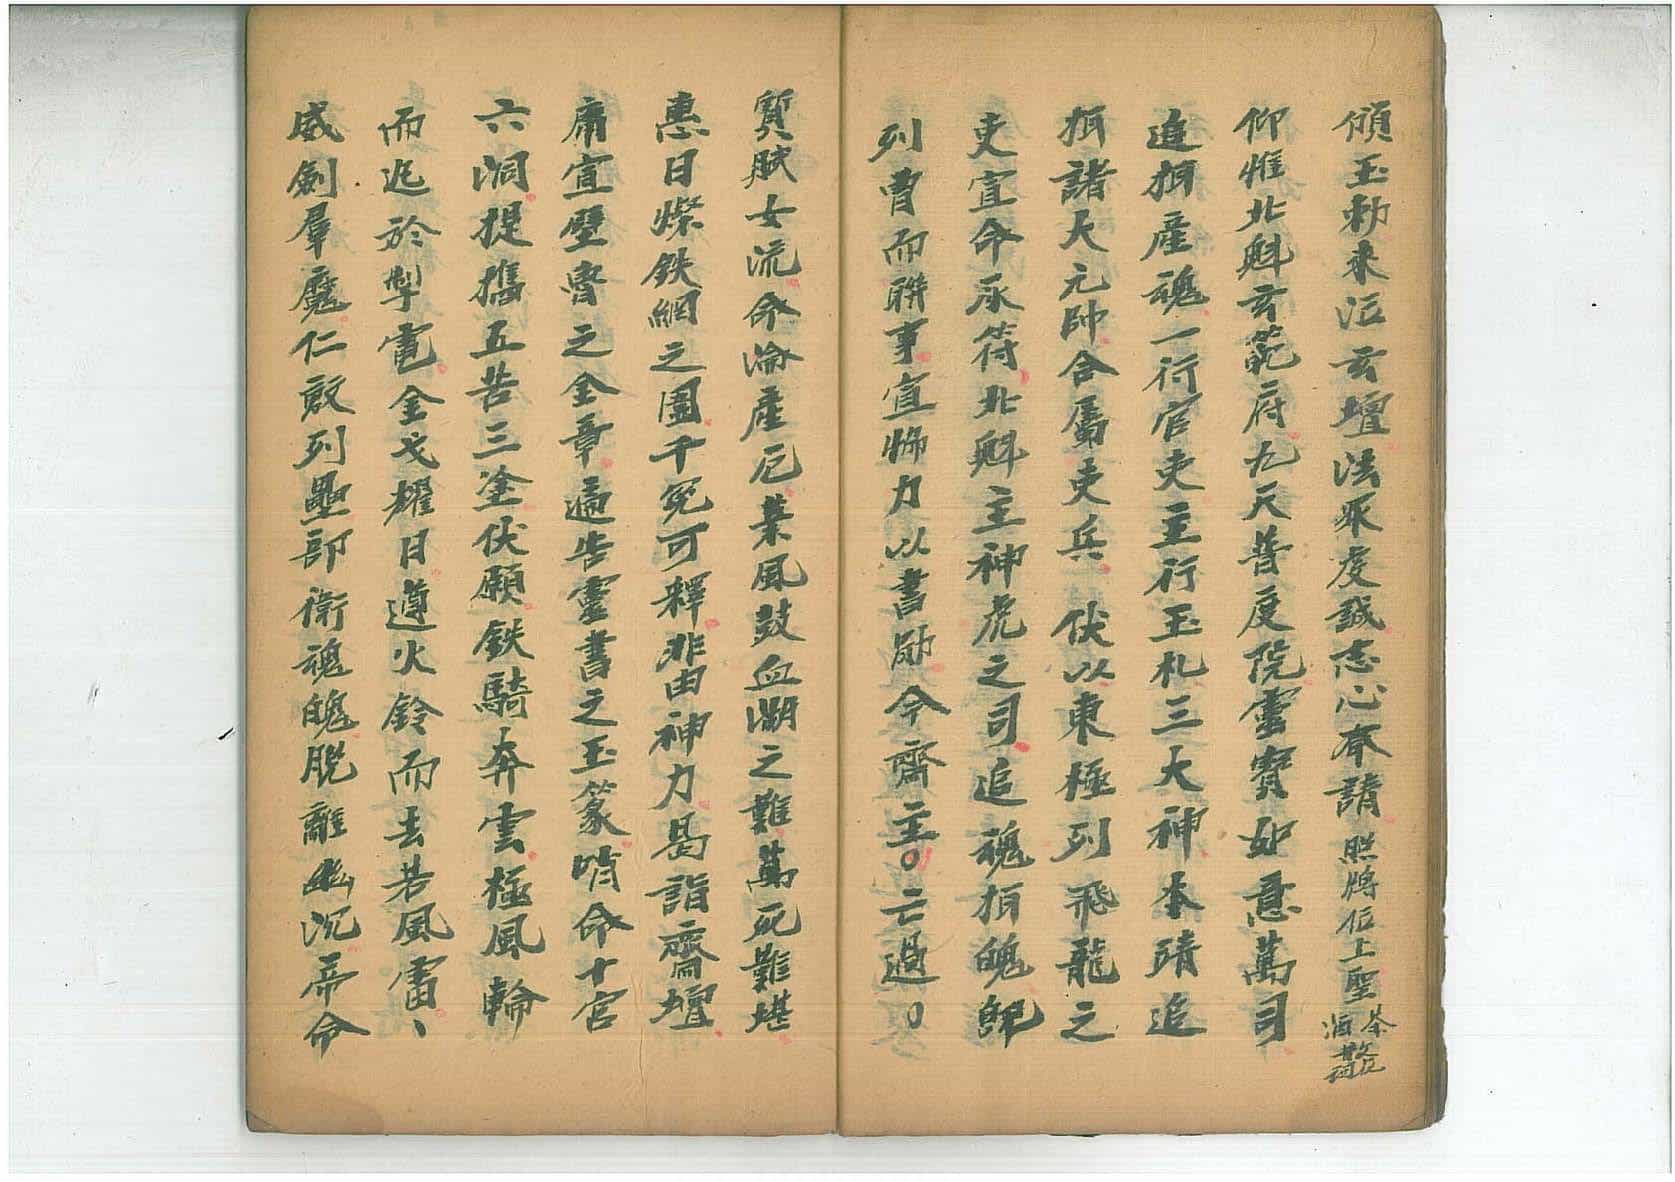 頒玉勅來泣玄壇法眾虔誠志心奉請照牌位上聖茶文位酒散詞
仰惟北魁玄範府九天普度院靈寶如意萬司
追攝產魂一行官吏主行玉札三大神本靖追
攝諸大元帥合屬吏兵伏以東極列飛龍之
吏宣命承符北魁主神虎之司追魂攝魄
列曹而聯事宣悌力以書勛今齋主○亡過○
質賦女流命淪產厄業風鼓血湖之難萬死難堪
惠日燦鉄網之圍千冤可釋非由神力曷詣齋壇
肅宣壁奏之金章遍告靈書之玉篆啃命十宮
六洞提攜五苦三塗伏願鉄騎奔雲極風輪
而迅於掣電金戈耀日導火鈴而去若風雷
威劍羣魔仁敷列壘部衛魂魄脫離幽沉希命